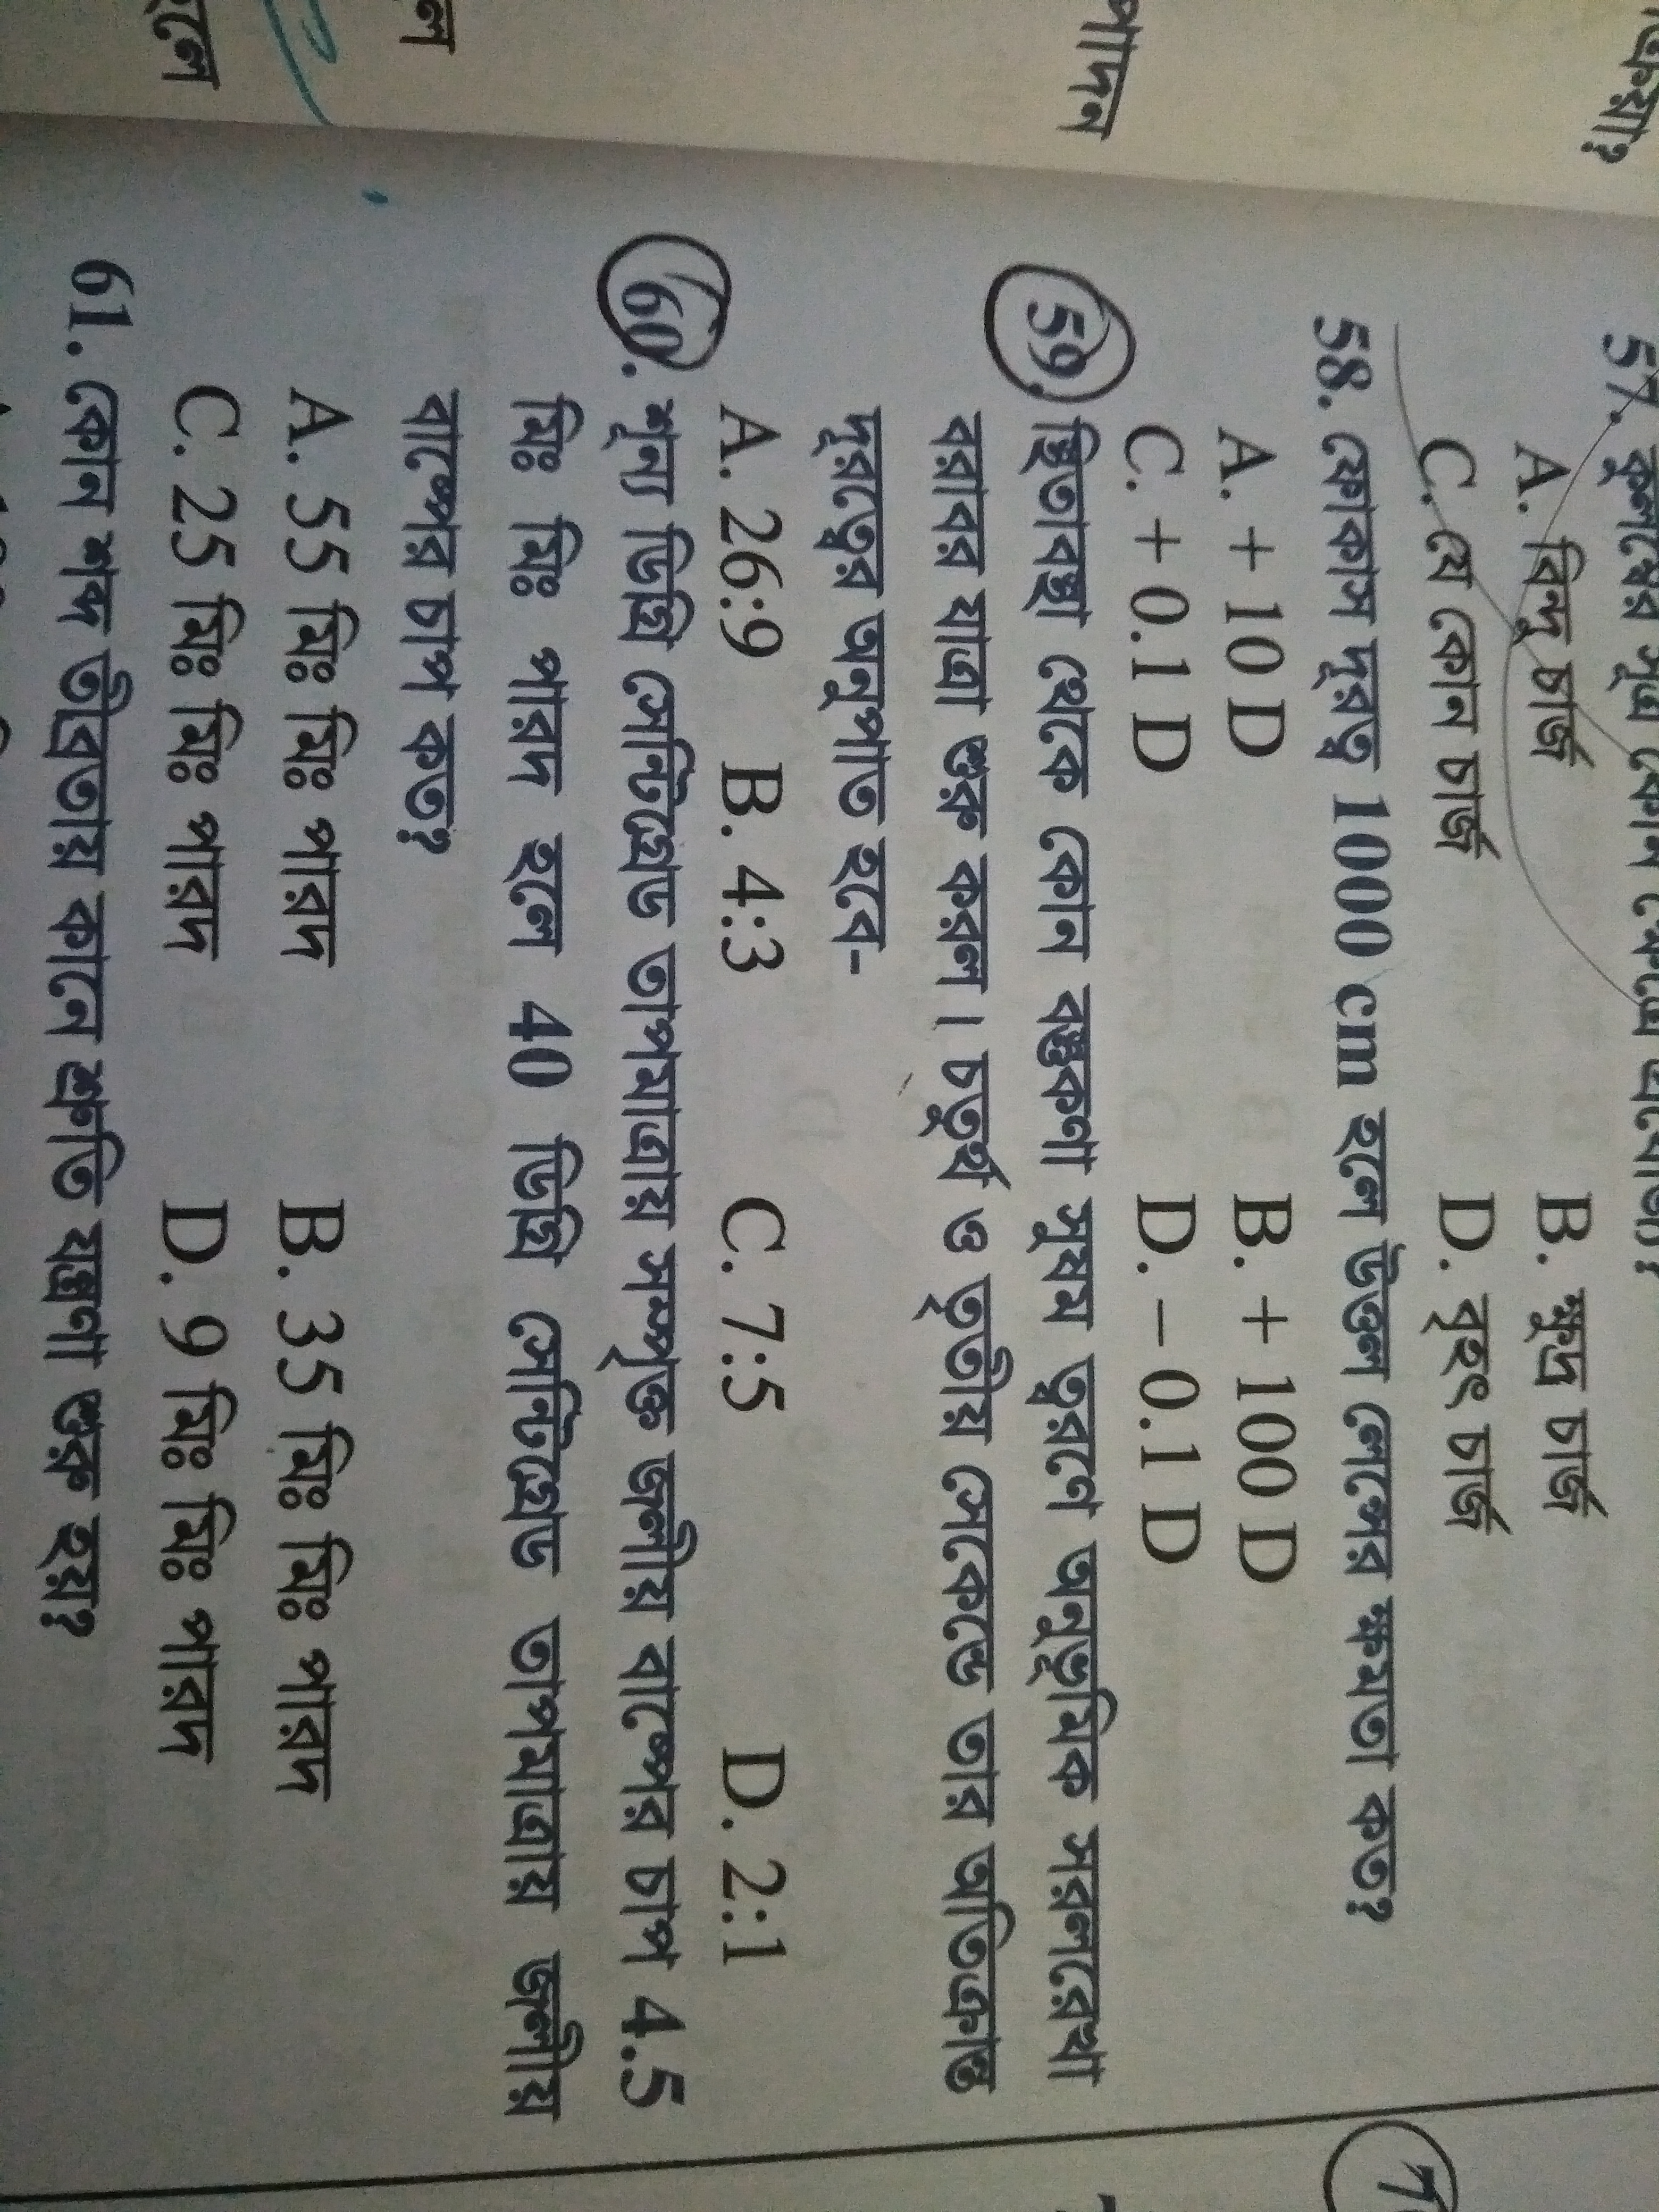 57. কুলম্বের সূত্র কোন ক্ষেত্রে প্রযোজ্য?
A. বিন্দু চার্জ B. ক্ষুদ্র চার্জ
C. যে কোন চার্জ D. বৃহৎ চার্জ
58. ফোকাস দূরত্ব 1000 cm হলে উত্তল লেন্সের ক্ষমতা কত?
A. + 10 D B. + 100 D
C. + 0.1 D D. – 0.1 D
59. স্থিতাবস্থা থেকে কোন বস্তুকণা সুষম ত্বরণে অনুভূমিক সরলরেখা
বরাবর যাত্রা শুরু করল। চতুর্থ ও তৃতীয় সেকেন্ডে তার অতিক্রান্ত
দূরত্বের অনুপাত হবে-
A. 26:9 B. 4:3 C. 7:5 D. 2:1
60. শূন্য ডিগ্রি সেন্টিগ্রেড তাপমাত্রায় সম্পৃক্ত জলীয় বাষ্পের চাপ 4.5
মিঃ মিঃ পারদ হলে 40 ডিগ্রি সেন্টিগ্রেড তাপমাত্রায় জলীয়
বাষ্পের চাপ কত?
A. 55 মিঃ মিঃ পারদ B. 35 মিঃ মিঃ পারদ
C. 25 মিঃ মিঃ পারদ D. 9 মিঃ মিঃ পারদ
61. কোন শব্দ তীব্রতায় কানে শ্রুতি যন্ত্রণা শুরু হয়?
পাদন